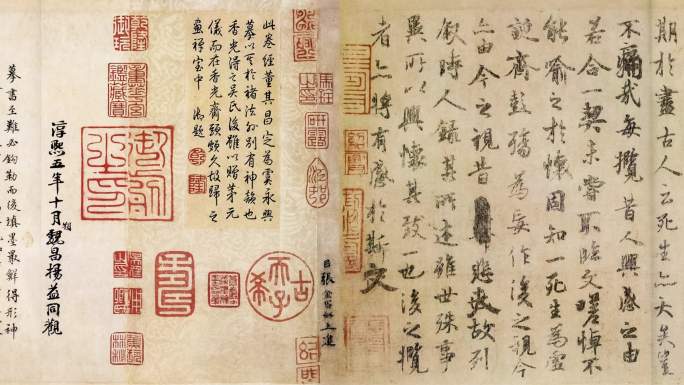 期於盡古人云死生亦大矣豈
不痛哉每攬昔人興感之由
若合一契未嘗不臨文嗟悼不
能喻之於懷固知一死生為虛
誕齊彭殤為妄作後之視今
亦由今之視昔悲夫故列
敘時人錄其所述雖世殊事
異所以興懷其致一也後之攬
者亦將有感於斯文
臣張金界奴上進
古希天子
此卷經董其昌定為虞永興
摹以其於褚法外別有神韻也
香光得之吳氏後雖以贈茅元
儀而在香光齋頭頗久故歸之
畫禪室中 御題
淳熙五年十月朔魏昌揚益同觀
摹書至難必鉤勒而後填墨最鮮得形神